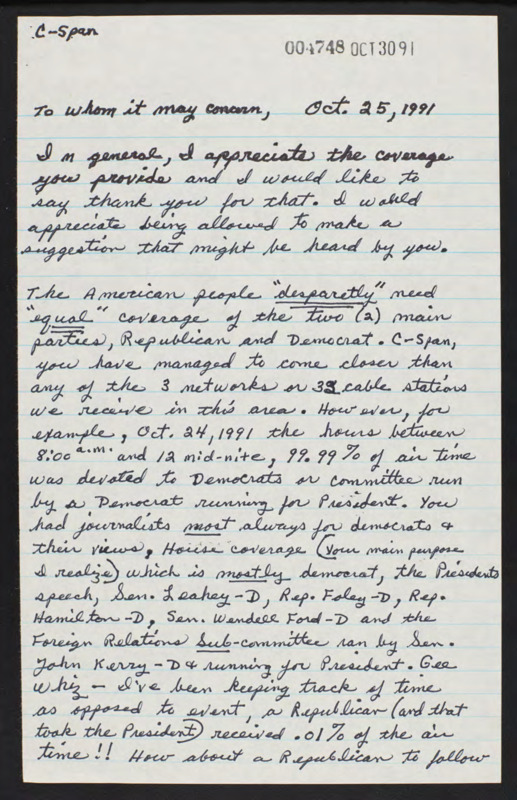 C-Span
004748 OCT3091
To whom it may concern, Oct. 25, 1991
In general, I appreciate the coverage
you provide and I would like to
say thank you for that. I would
appreciate being allowed to make a
suggestion that might be heard by you.
The American people "desparetly" need
"equal" coverage of the two (2) main
parties, Republican and Democrat. C-Span,
you have managed to come closer than
any of the 3 networks or 33 cable stations
we receive in this area. However, for
example, Oct. 24, 1991 the hours between
8:00 a.m. and 12 mid-nite, 99.99% of air time
was devoted to Democrats or committee run
by a Democrat running for President. You
had journalists most always for democrats &
their views, House coverage (your main purpose
I realize) which is mostly democrat, the Presidents
speech, Sen. Leahey-D, Rep. Foley-D, Rep.
Hamilton-D, Sen. Wendell Ford-D and the
Foreign Relations Sub-committee ran by Sen.
John Kerry-D & running for President. Gee
Whiz - I've been keeping track of time
as opposed to event, a Republican (and that
took the President) received .01% of the air
time!! How about a Republican to follow